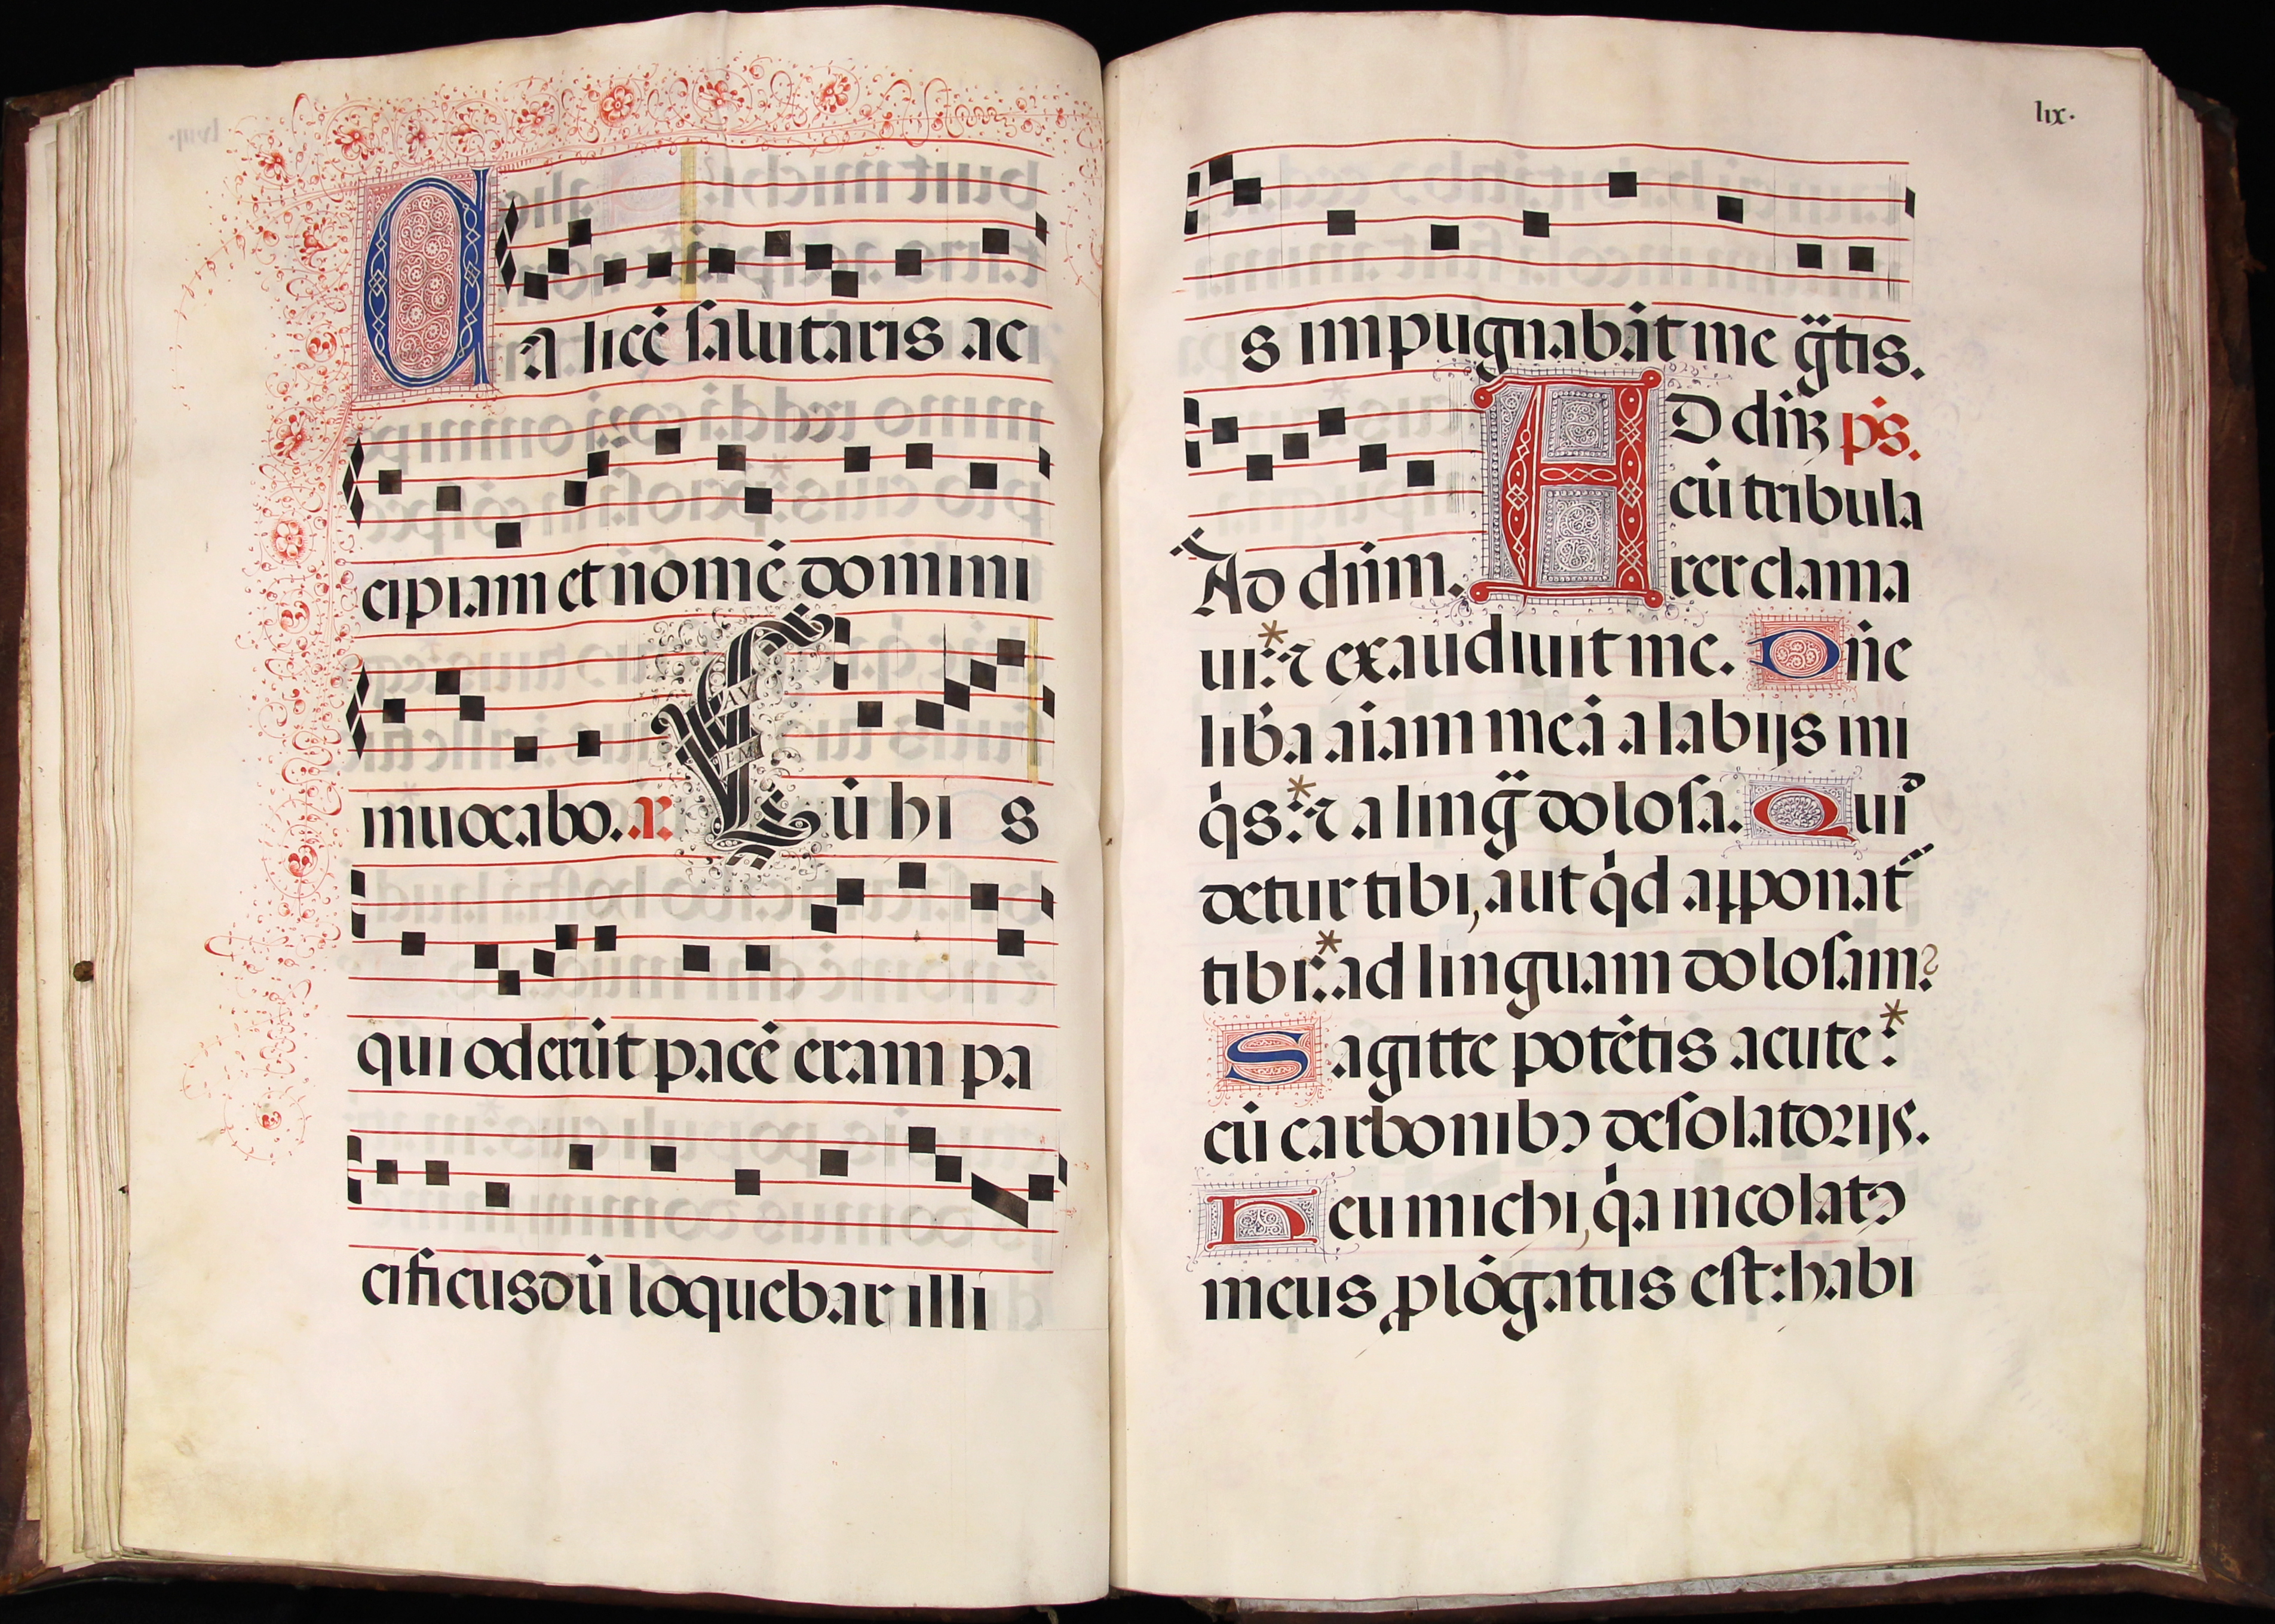 CA licē salutaris ac
cipiam et nomē domini
inuocabo. a. Cū hi s
AV
EM
qui oderūt pacē eram pa
cificus dū loquebar illi
lix.
s impugnabāt me g̈tis.
AD dn̄ꝫ ps̄.
cū tribula
Ad dn̄m. rer clama
ui:* ⁊ exaudiuit me. Dn̄e
lib̄a aīam meā a labijs ini
q̇s:* ⁊ a ling̈ dolosa. Quiͩ
detur tibi, aut q̇d apponat᷑
tibi:* ad linguam dolosam?
Sagitte potētis acute:*
cū carbonibꝯ desolatorijs.
Heu michi, q̇a incolatꝯ
meus ꝓlōgatus est: habi